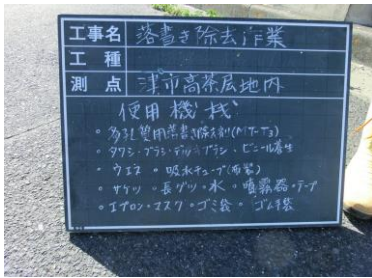 工事名 落書き除去作業
工種
測点 津市高茶屋地内
使用機械
。 用落書き除去剤(MT-T3)
。タワシ・ブラシ・デッキブラシ・ビニール養生
。ウエス ・吸水チューブ(布製)
。 長グツ・水 ・噴霧器・テープ
。エプロン・マスク・ゴミ袋 ・ゴム手袋